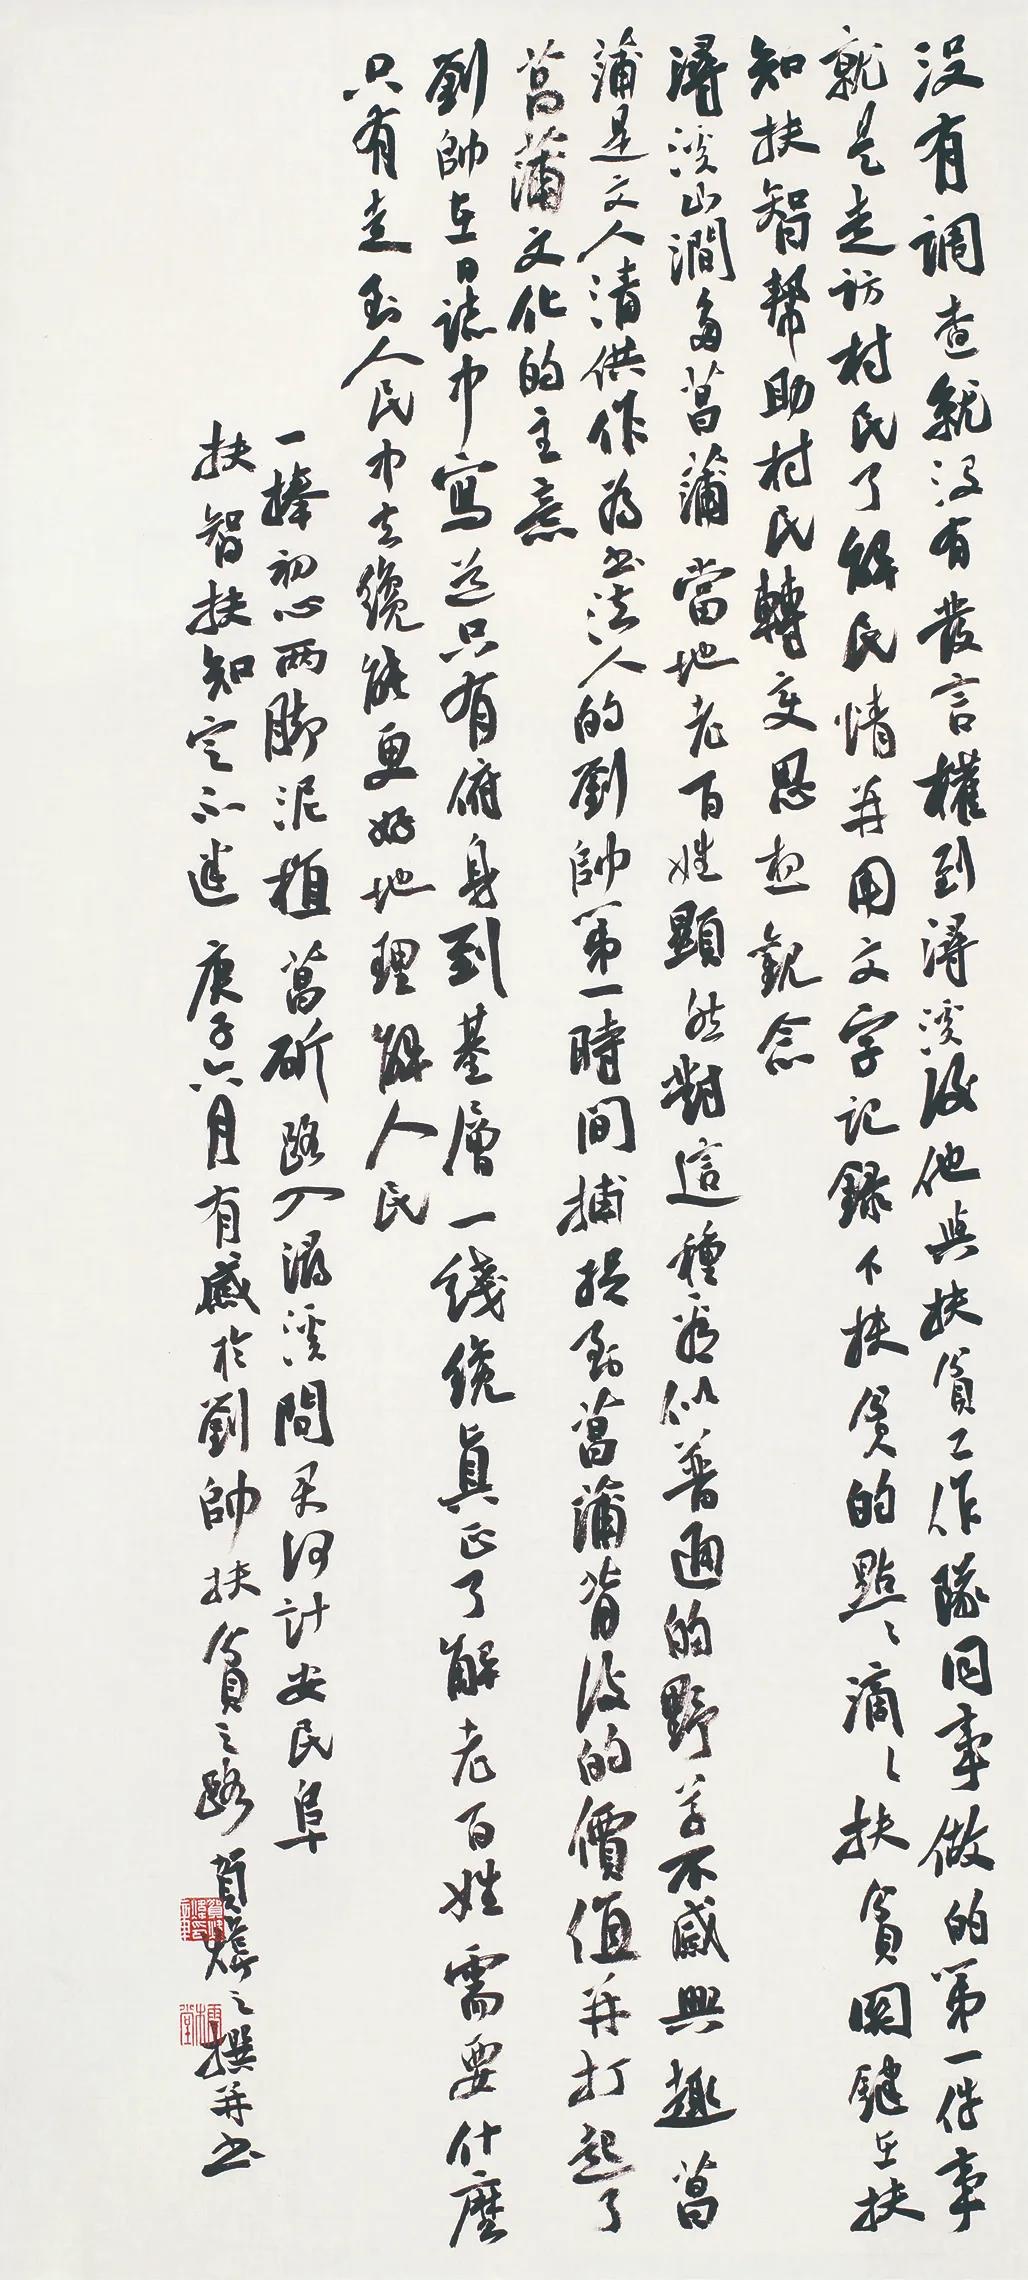 没有調查就没有發言權到潯溪後他與扶貧工作隊同事做的第一件事
就是走访村民了解民情并用文字记録下扶贫的點點滴滴扶貧関鍵在扶
知扶智幫助村民轉变思想觀念
潯溪山澗多菖蒲當地老百姓顯然對這種看似普通的野草不感興趣菖
蒲是文人清供作為书法人的劉帥第一時间捕捉到菖蒲背後的價值并打起了
菖蒲文化的主意
劉帥在日誌中寫道只有俯身到基層一线纔真正了解老百姓需要什麼
只有走到人民中去纔能更好地理解人民
一捧初心两脚泥植菖斫路入潯溪問君何计安民阜
扶智扶知定不迷 庚子六月有感於劉帥扶貧之路 賀煒之撰并书